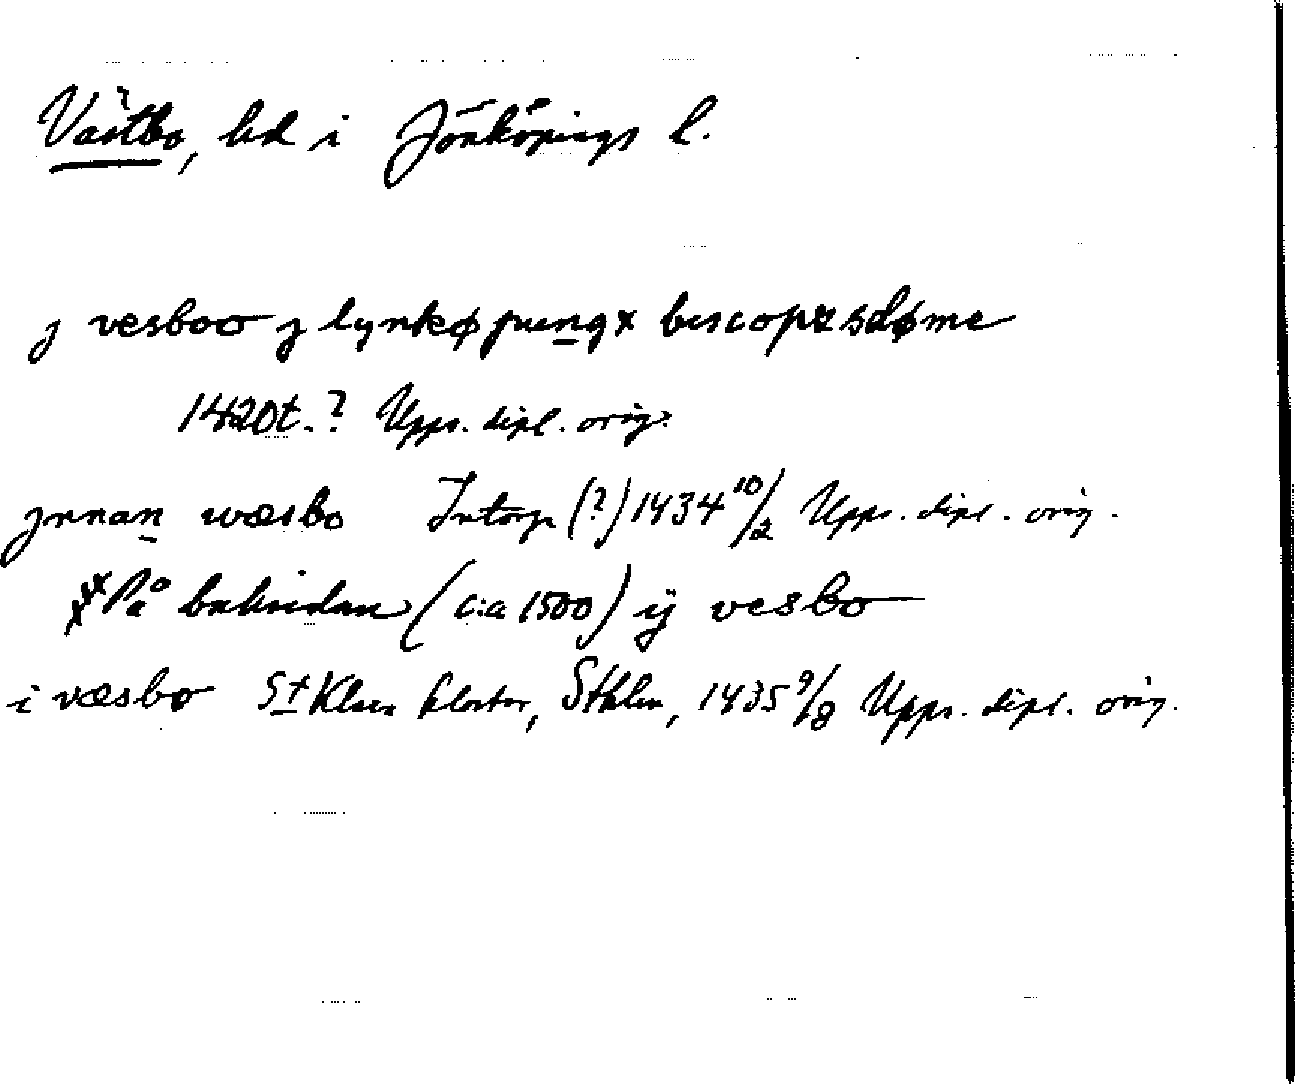 Västbo, hd i Jönköpings l.
j vesboo j lynkøpungx biscopzsdøme
1420t.? Upps. dipl. orig.
jnnan wæsbo Intorp (?) 1434 10/2 Upps. dipl. orig.
På baksidan (c:a 1500) ij vesbo
i væsbo St Klara kloster, Sthlm, 1435 9/8 Upps. dipl. orig.